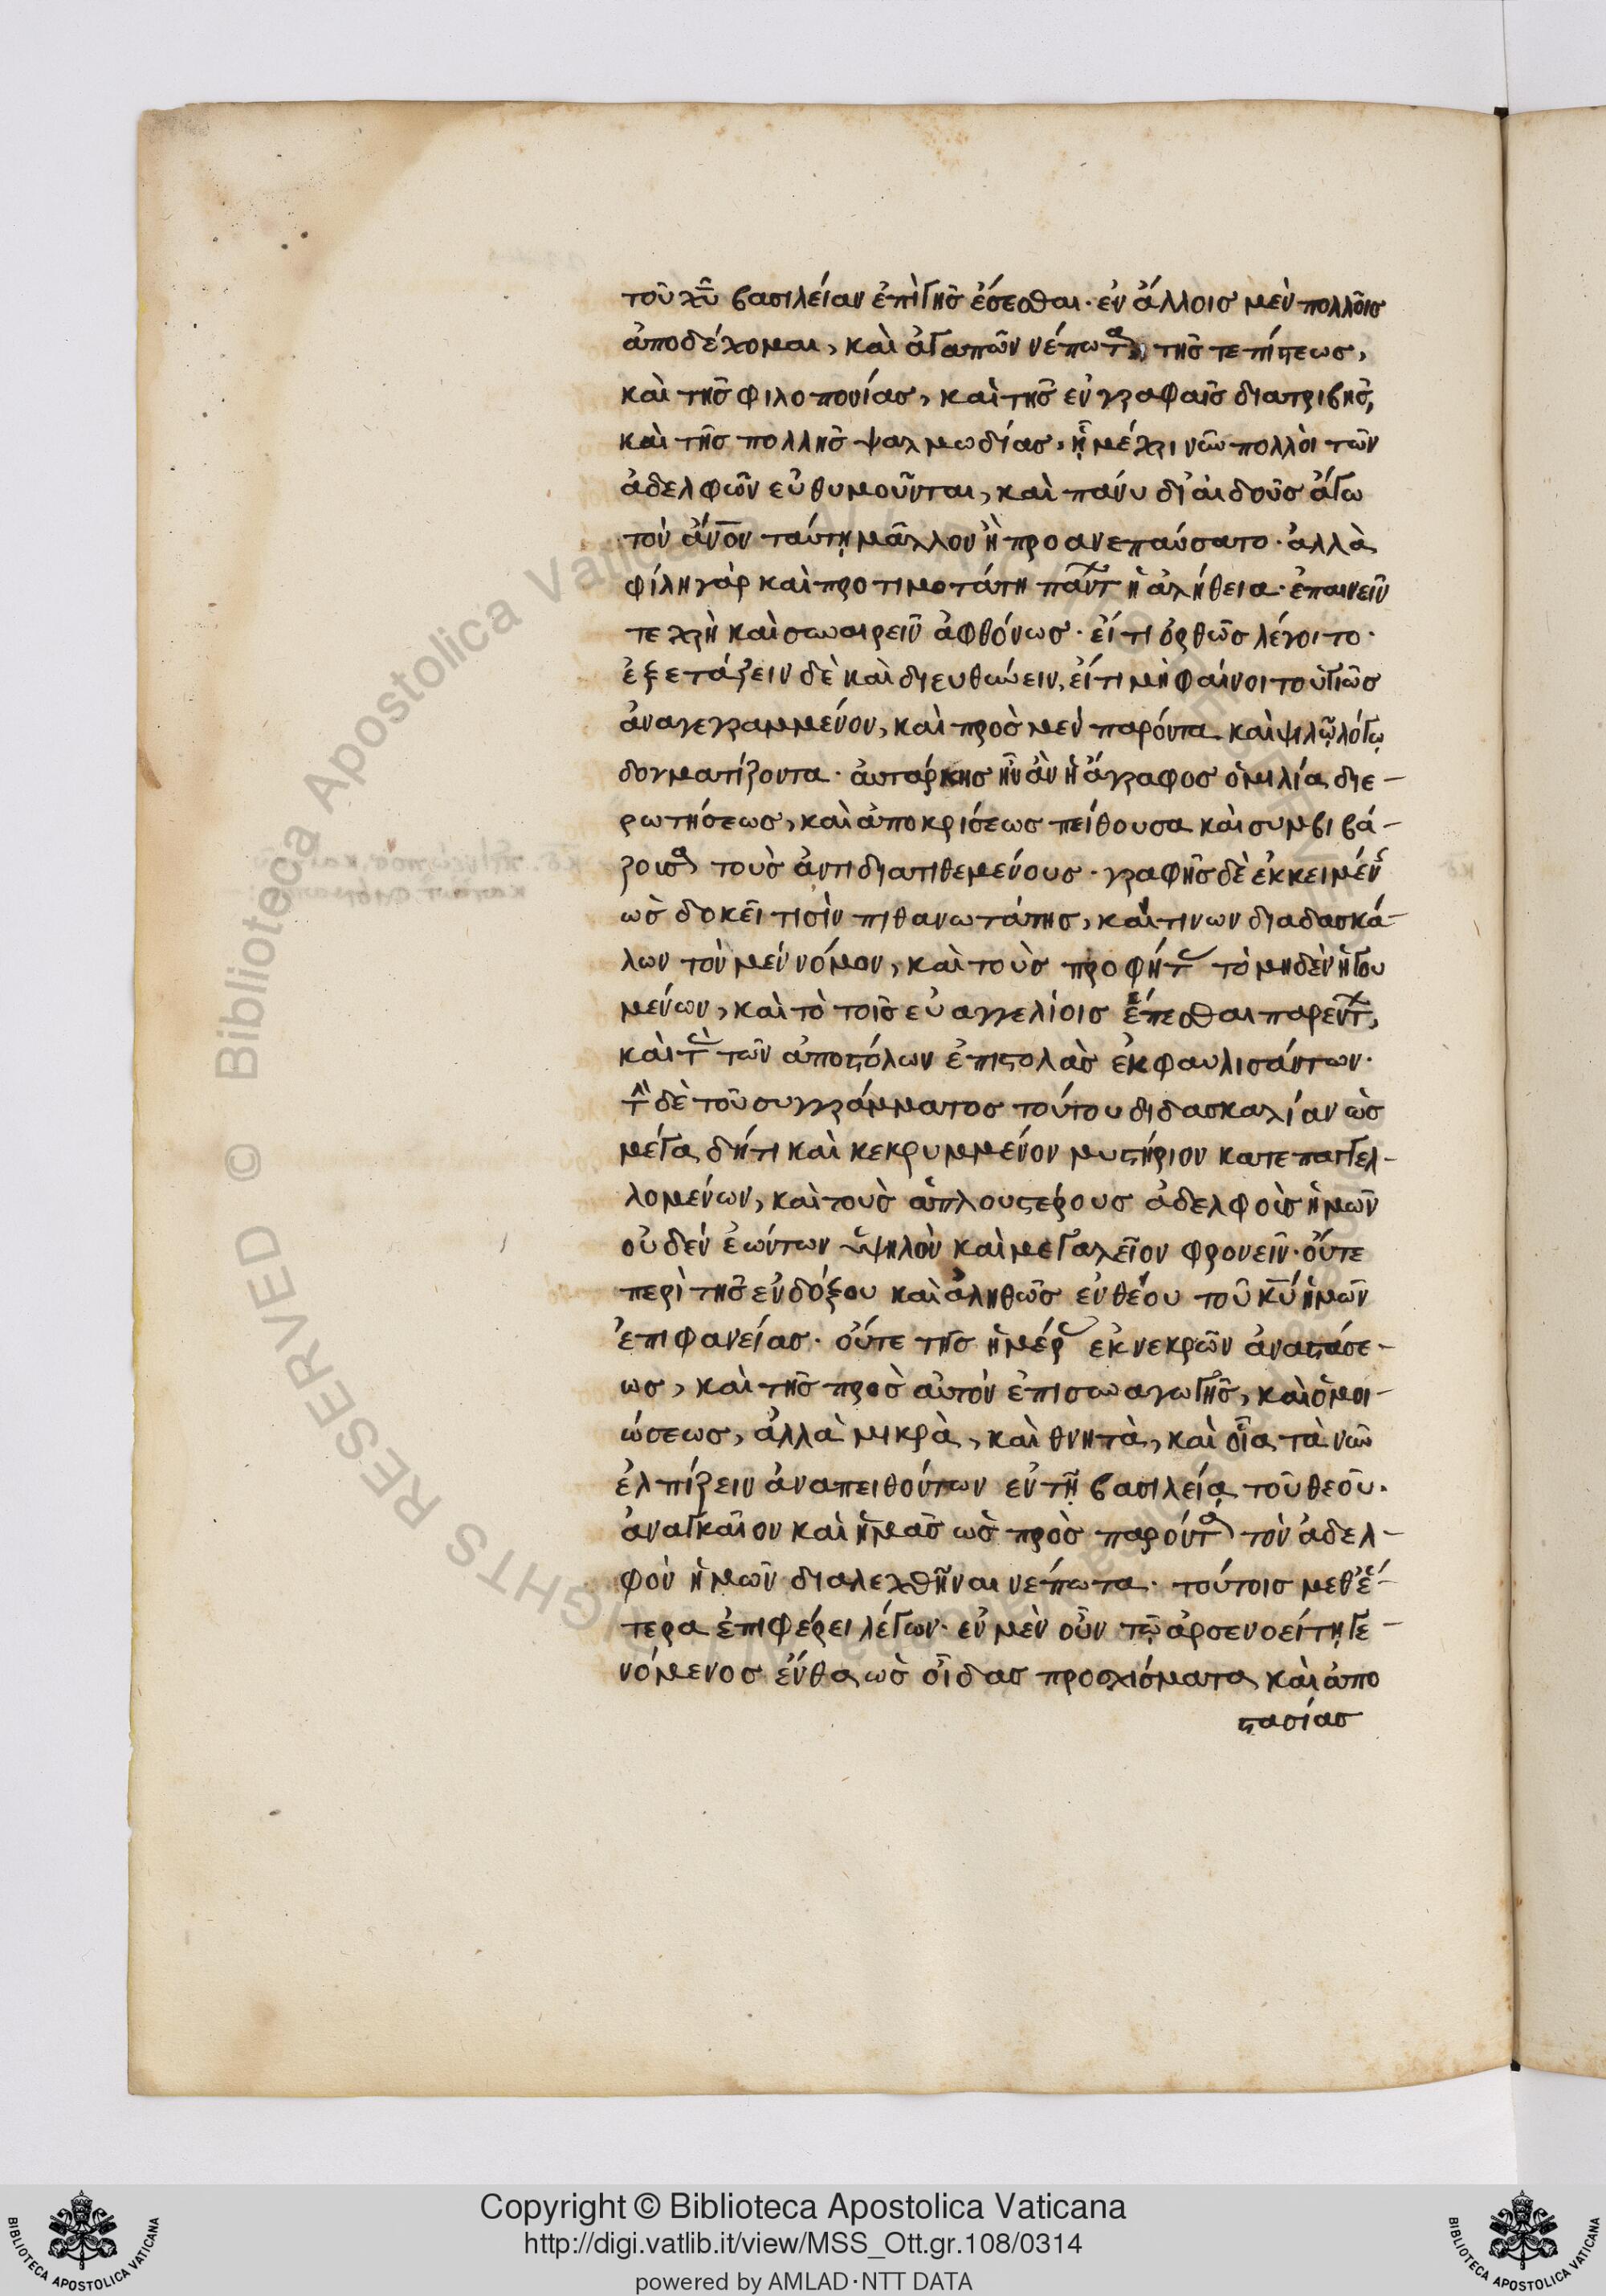 τοῦ χῦ βασιλείαν ἐπὶ γῆς ἔσεσθαι· ἐν ἄλλοις μὲν πολλοῖς
ἀποδέχομαι, καὶ ἀγαπῶν νέπωτα, τῆς τε πίστεως,
καὶ τῆς φιλοπονίας, καὶ τῆς ἐν γραφαῖς διατριβῆς,
καὶ τῆς πολλῆς ψαλμωδίας, ᾗ μέχρι νῦν πολλοὶ τῶν
ἀδελφῶν εὐθυμοῦνται, καὶ πάνυ δι' αἰδοῦς ἄγω
τὸν ἄνον ταύτῃ μᾶλλον ἢ προανεπαύσατο· ἀλλὰ
φίλη γὰρ καὶ προτιμοτάτη πάντων ἡ ἀλήθεια· ἐπαινεῖν
τε χρὴ καὶ συναιρεῖν ἀφθόνως· εἴ τι ὀρθῶς λέγοιτο·
ἐξετάζειν δὲ καὶ διευθύνειν, εἴ τι μὴ φαίνοιτο ὑγιῶς
ἀναγεγραμμένον, καὶ πρὸς μὲν παρόντα καὶ ψιλῷ λόγῳ
δογματίζοντα· αὐτάρκης ἦν ἂν ἡ ἄγραφος ὁμιλία διε-
ρωτήσεως, καὶ ἀποκρίσεως πείθουσα καὶ συμβιβά-
ζουσα τοὺς ἀντιδιατιθεμένους· γραφῆς δὲ ἐκκειμένης
ὡς δοκεῖ τισὶν πιθανωτάτης, καί τινων διαδασκά-
λων τὸν μὲν νόμον, καὶ τοὺς προφήτας τὸ μηδὲν ἡγου
μένων, καὶ τὸ τοῖς εὐαγγελίοις ἕπεσθαι παρέντων,
καὶ τὰς τῶν ἀποστόλων ἐπιστολὰς ἐκφαυλισάντων·
τὴν δὲ τοῦ συγγράμματος τούτου διδασκαλίαν ὡς
μέγα δή τι καὶ κεκρυμμένον μυστήριον κατεπαγγελ-
λομένων, καὶ τοὺς ἁπλουστέρους ἀδελφοὺς ἡμῶν
οὐδὲν ἐώντων ὑψηλὸν καὶ μεγαλεῖον φρονεῖν· οὔτε
περὶ τῆς ἐνδόξου καὶ ἀληθῶς ἐνθέου τοῦ κῦ ἡμῶν
ἐπιφανείας· οὔτε τῆς ἡμέρας ἐκ νεκρῶν ἀναστάσε-
ως, καὶ τῆς πρὸς αὐτὸν ἐπισυναγωγῆς, καὶ ὁμοι-
ώσεως, ἀλλὰ μικρὰ, καὶ θνητὰ, καὶ οἷα τὰ νῦν
ἐλπίζειν ἀναπειθόντων ἐν τῇ βασιλείᾳ τοῦ θεοῦ·
ἀναγκαῖον καὶ ἡμᾶς ὡς πρὸς παρόντα τὸν ἀδελ-
φὸν ἡμῶν διαλεχθῆναι νέπωτα· τούτοις μεθ' ἕ-
τερα ἐπιφέρει λέγων· ἐν μὲν οὖν τῷ ἀρσενοείτῃ γε-
νόμενος ἔνθα ὡς οἶδας προσχίσματα καὶ ἀπο
στασίας
Copyright © Biblioteca Apostolica Vaticana
http://digi.vatlib.it/view/MSS_Ott.gr.108/0314
powered by AMLAD·NTT DATA